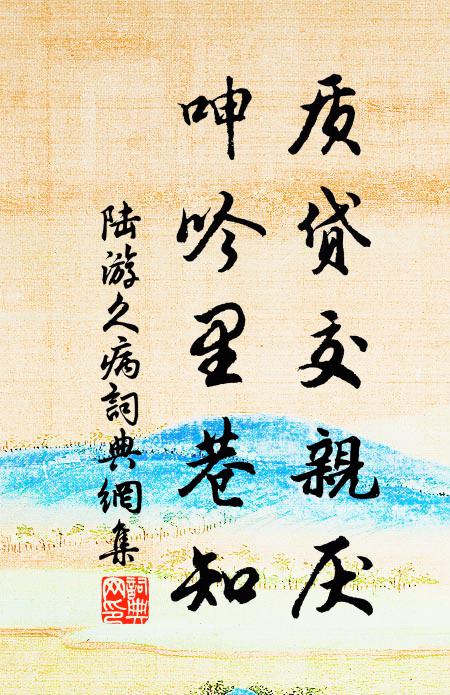 质贷交親厌
呻吟里巷知
陆游久病詞典網集
詞典网印